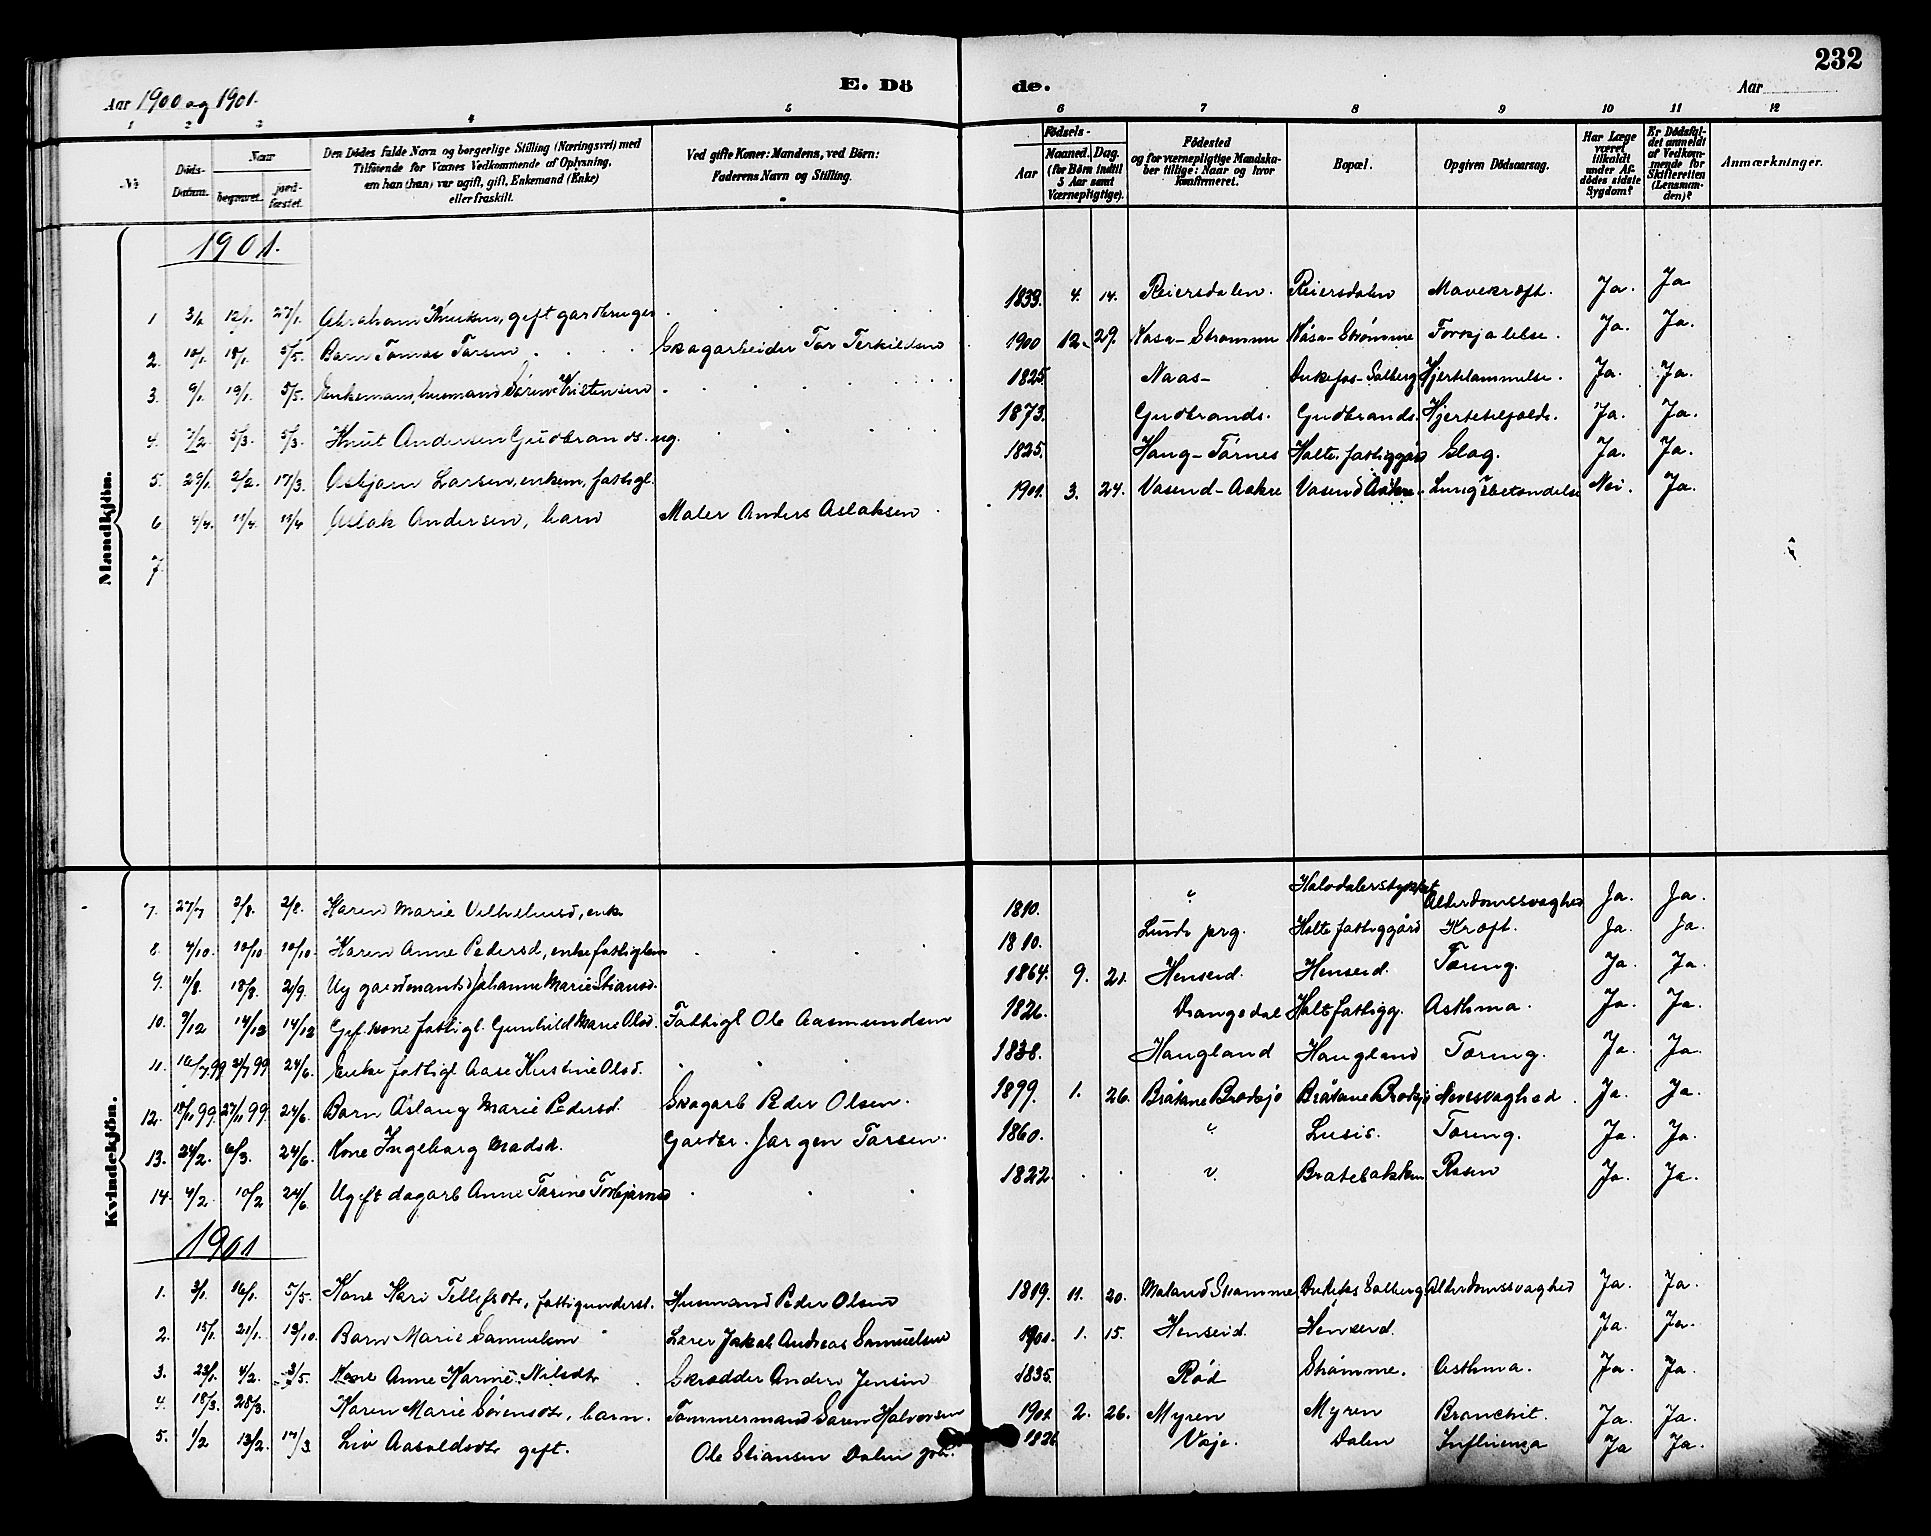 232
E. Dö de.
Aar 1900 og 1901.
Aar
1 2 3 4 5 6 7 8 9 10 11 12
№
Döds-Datum.
Naar begravet. jordfæstet.
Den Dödes fulde Navn og borgerlige Stilling (Næringsvei) med Tilföiende for Voxnes Vedkommende af Oplysning, om han (hun) var ugift, gift, Enkemand (Enke) eller fraskilt.
Ved gifte Koner: Mandens, ved Börn: Faderens Navn og Stilling.
Födsels-
Aar
Maaned. Dag. (for Börn indtil 5 Aar samt Værnepligtige).
Födested og for værnepligtige Mandskaber tillige: Naar og hvor konfirmeret.
Bopæl.
Opgiven Dödsaarsag.
Har Læge været tilkaldt under Afdödes sidste Sygdom?
Er Dödsfaldet anmeldt af Vedkommende for Skifteretten (Lensmanden)?
Anmærkninger.
Mandkjön.
1901.
1 3/1 12/1. 27/1. Abraham Knutsen, gift gardbruger 1839. 4. 14. Reiersdalen. Reiersdalen Mavekræft. Ja. Ja
2. 10/1. 18/1. 5/5. Barn Tomas Torsen Skogarbeider Tor Terkildsen 1900 12. 29. Vasa-Strømme Våsa-Strømme Forkjølelse. Ja. Ja.
3. 9/1. 19/1. 5/5. Enkemand, husmand Søren Kristensen 1825. Naas- Dukefos-Solberg Hjertelammelse. Ja. Ja.
4. 2/2. 5/3. 5/3. Knut Andersen Gudbrands. ug. 1873. Gudbrands. Gudbrands. Hjertetilfælde. Ja. Ja.
5. 29/1. 2/2. 17/3. Asbjørn Larsen, enkem, fattigl. 1825. Haug-Tørnes Holte. fattiggård Slag. Ja. Ja.
6 4/4. 11/4. 11/4 Aslak Andersen, barn Maler Anders Aslaksen 1901. 3. 24. Vasend-Aakre Vasend Aakre Lungebetændelse Nei. Ja.
7
Kvindekjön.
7. 27/7 2/8. 2/8. Karen Marie Vilhelmsd, enke 1810. " Alderdomssvaghed Ja. Ja.
8. 4/10. 10/10 10/10. Karen Anne Pedersd, enke fattiglem 1810. Lunde prg. Holte fattiggård Kræft. Ja. Ja.
9. 11/8. 18/8. 2/9. Ug gardmantsd Johanne Marie Stiansd. 1864. 9. 21. Henseid. Henseid. Tæring. Ja. Ja.
10. 9/12 14/12 14/12 Gift kone fattigl. Gunhild Marie Olsd. Fattigl Ole Aasmundsen 1826. Drangedal Holt fattigg. Asthma. Ja. Ja.
11. 16/7 99 21/7 99 24/6. Enke fattigl Aase Kirstine Olsd. 1838. Haugland Haugland Tæring. Ja. Ja.
12. 18/11 99. 27/11 99. 24/6. Barn Aslaug Marie Pedersd. Skogarb Peder Olsen. 1899. 1. 26. Bråtane Brødsjø Bråtane Brødsjø Nervesvaghed. Ja. Ja.
13. 24/2. 6/3. 24/6. Kone Ingeborg Madsd. Gardbr. Jørgen Torsen. 1860. " Lusis. Tæring. Ja. Ja.
14. 4/2. 10/2 24/6. Ugift dagarb Anne Torine Torbjørnsd 1822 " Bratebakken Rosen Ja. Ja.
1901
1. 3/1. 16/1. 5/5. Kone Kari Tellefsdtr, fattigunderst. Husmand Peder Olsen 1819. 11. 20. Moland Strømme Dukefos Solberg Alderdomssvaghed Ja. Ja.
2. 15/1. 21/1. 13/10. Barn Marie Samuelsen Lærer Jakob Andreas Samuelsen 1901. 1. 15. Henseid. Henseid. Ja. Ja.
3. 23/1. 4/2. 3/5. Kone Anne Karine Nilsdtr Skrædder Anders Jensen 1835. Rød Strømme. Asthma. Ja. Ja.
4. 18/3. 28/3. Karen Marie Sørensdtr, barn. Tømmermand Søren Halvorsen 1901. 2. 26. Myren Myren Bronchit. Ja. Ja.
5. 1/2 13/2. 17/3 Liv Aasoldsdtr gift. Ole Stiansen Dalen gbr. 1826 Voje. Dalen Influenza Ja Ja.